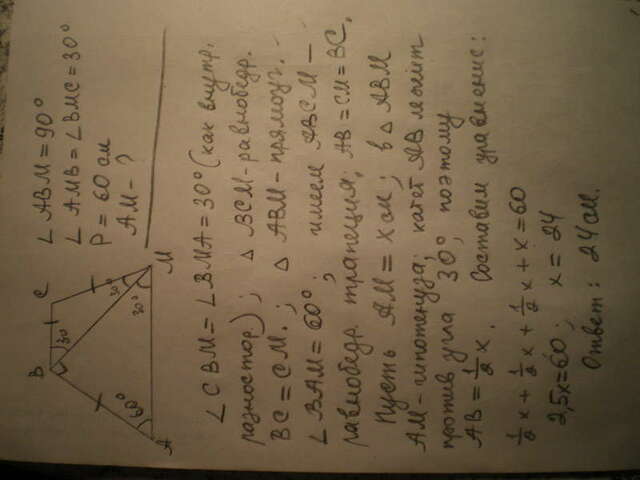 B
C
30
30°
60°
30°
A
M
∠ABM = 90°
∠AMB = ∠BMC = 30°
P = 60 см
AM - ?
∠CBM = ∠BMA = 30° (как внутр.
разностор); △ BCM - равнобедр.
BC = CM.; △ ABM - прямоуг.
∠BAM = 60°; имеем ABCM -
равнобедр. трапеция; AB = CM = BC.
Пусть AM = x см; в △ ABM
AM - гипотенуза; катет AB лежит
против угла 30°, поэтому
AB = 1/2 x. Составим уравнение:
1/2 x + 1/2 x + 1/2 x + x = 60
2,5x = 60; x = 24
Ответ: 24 см.